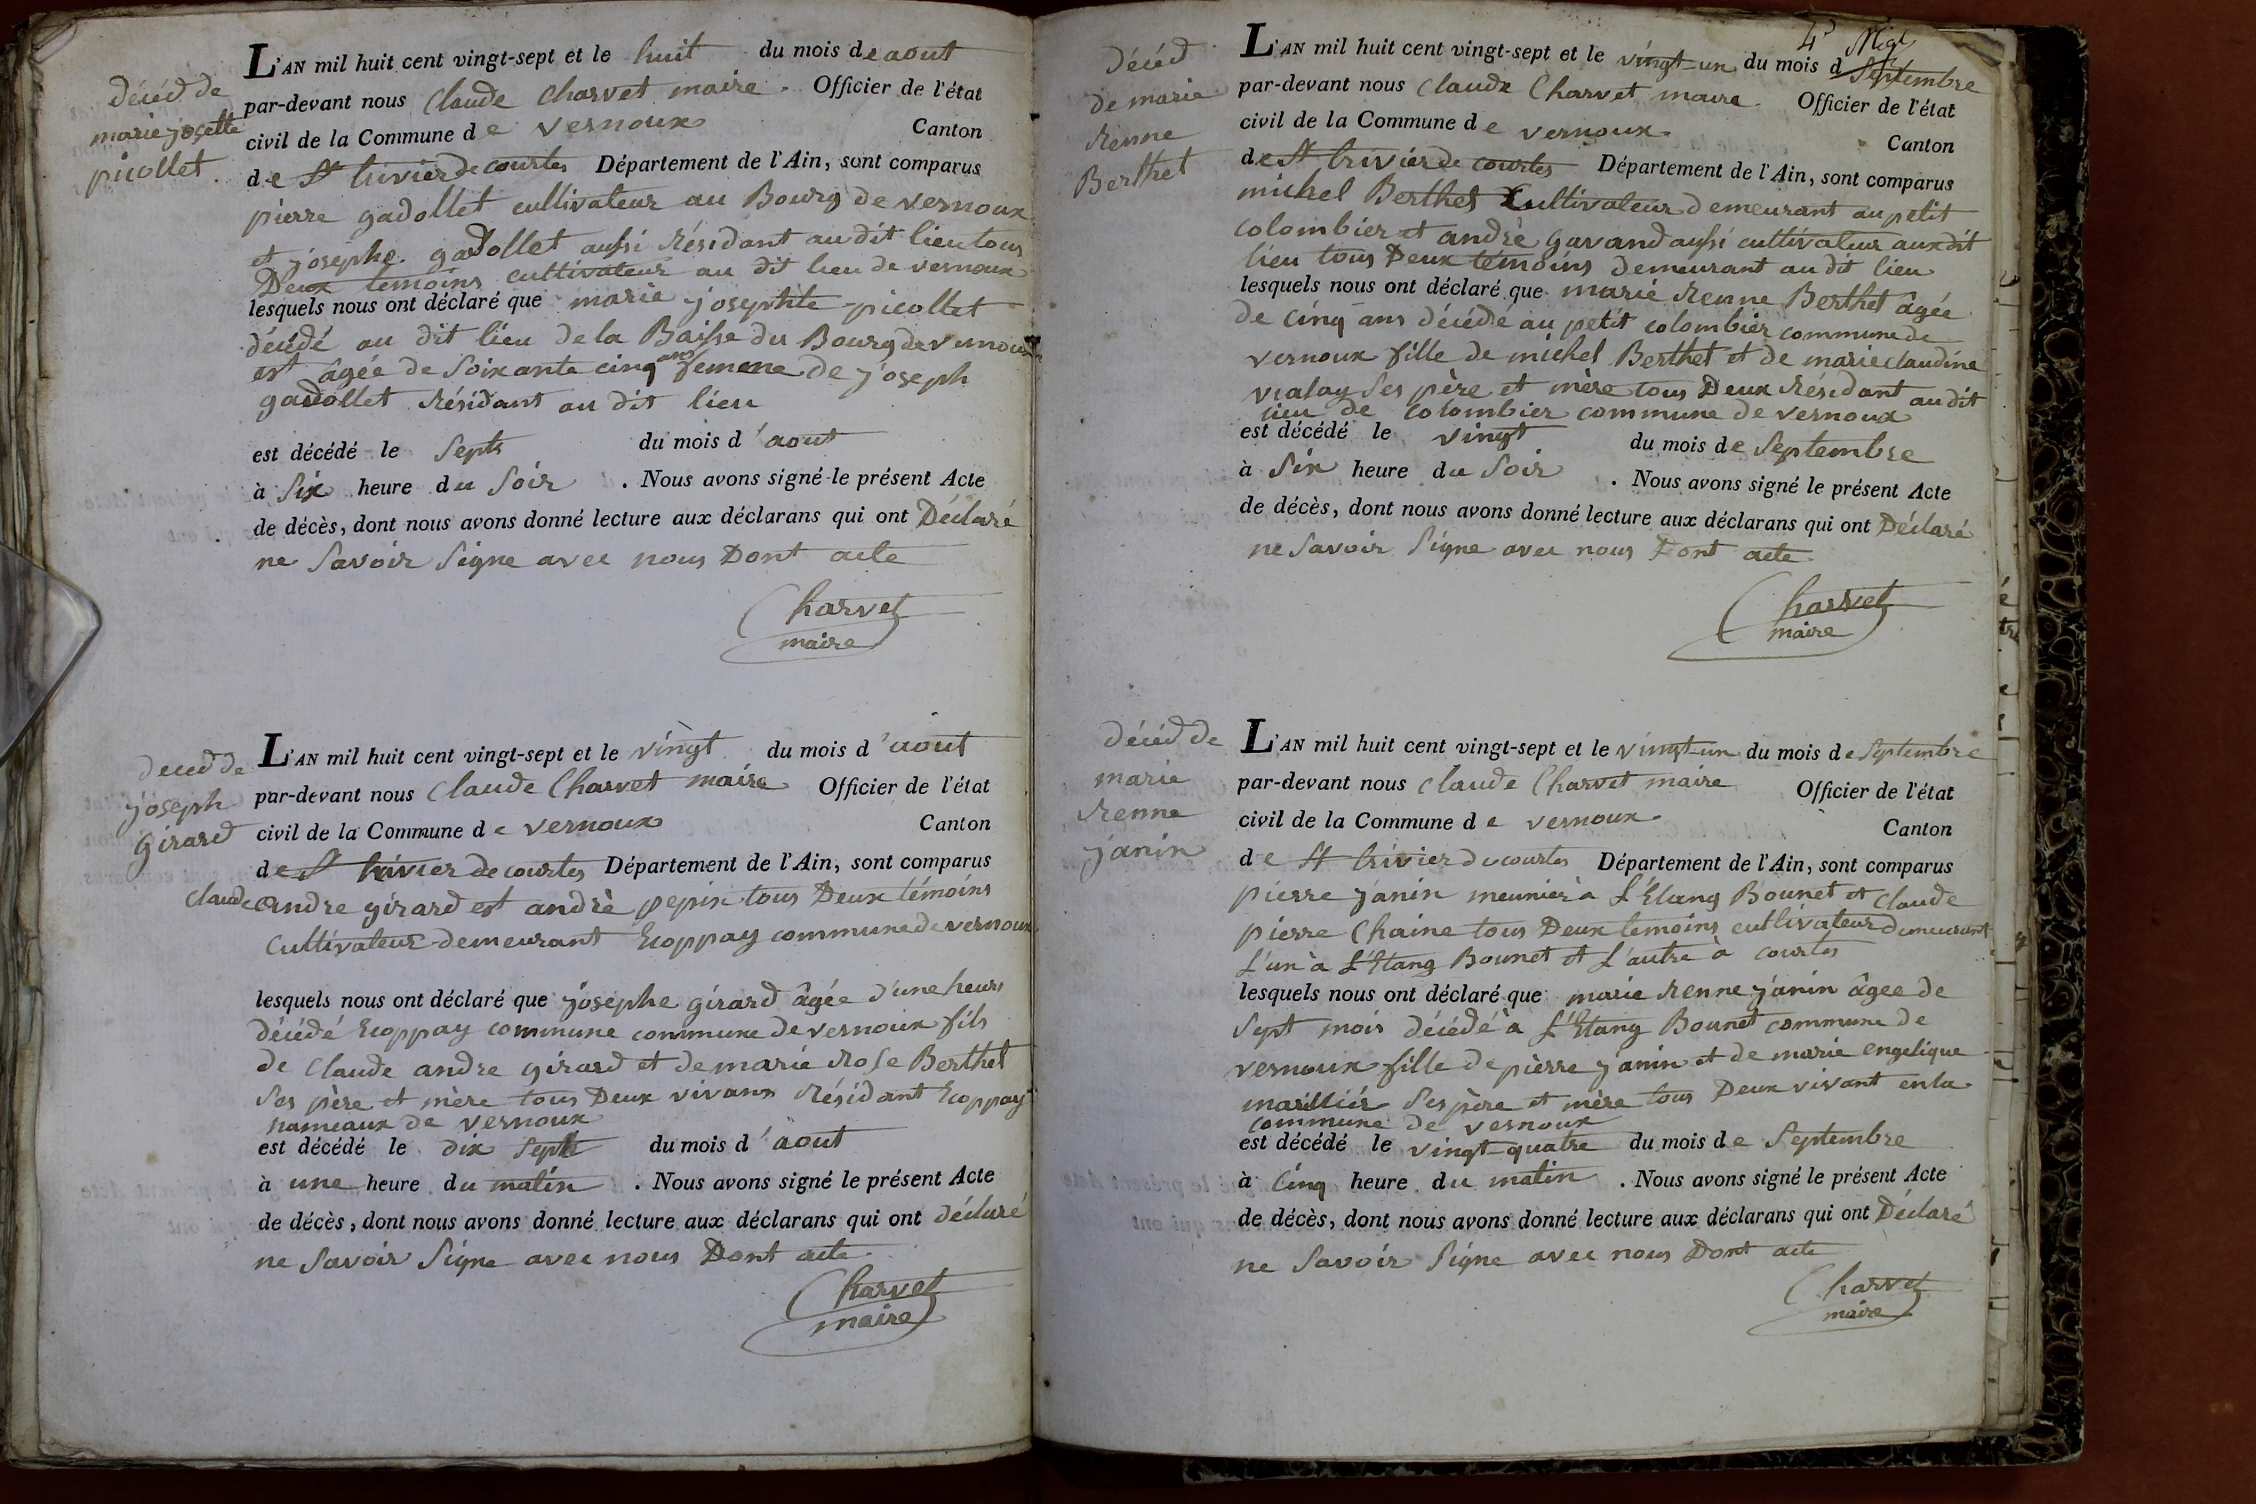 décéd de
marie josette
picollet
L'AN mil huit cent vingt-sept et le huit du mois de aout
par-devant nous Claude Charvet maire Officier de l'état
civil de la Commune de vernoux Canton
de St trivier de courtes Département de l'Ain, sont comparus
pierre gadollet cultivateur au Bourg de vernoux
et josephe gadollet aussi résidant au dit lieu tous
Deux temoins cultivateur au dit lieu de vernoux
lesquels nous ont déclaré que marie josephte picollet
décédé au dit lieu de la Baisse du Bourg de vernoux
est âgée de Soixante cinq ans femme de joseph
gadollet résidant au dit lieu
est décédé le Septs du mois d'aout
à Six heure du Soir . Nous avons signé le présent Acte
de décès, dont nous avons donné lecture aux déclarans qui ont Déclaré
ne Savoir Signe avec nous Dont acte
Charvet
maire
deced de
joseph
girard
L'AN mil huit cent vingt-sept et le vingt du mois d'aout
par-devant nous Claude Charvet maire Officier de l'état
civil de la Commune de vernoux Canton
de St trivier de courtes Département de l'Ain, sont comparus
Claude andre girard et andrè pepin tous Deux témoins
Cultivateur demeurant Ecoppay commune de vernoux
lesquels nous ont déclaré que josephe girard âgée d'une heure
décédé Ecoppay commune commune de vernoux fils
de Claude andre girard et de marie Rose Berthet
Ses père et mère tous Deux vivans Résidant Ecoppay
hameaux de vernoux
est décédé le dix Sept du mois d'aout
à une heure du matin . Nous avons signé le présent Acte
de décès, dont nous avons donné lecture aux déclarans qui ont déclaré
ne Savoir Signe avec nous Dont acte
Charvet
maire
4e
décéd
de marie
Renne
Berthet
L'AN mil huit cent vingt-sept et le vingt-un du mois d Septembre
par-devant nous Claude Charvet maire Officier de l'état
civil de la Commune de vernoux Canton
de St trivier de courtes Département de l'Ain, sont comparus
michel Berthet Cultivateur demeurant au petit
colombier et andrè gavand aussi cultivateur aux dit
lieu tous Deux témoins demeurant au dit lieu
lesquels nous ont déclaré que marie Renne Berthet âgée
de cinq ans décédé au petit colombier commune de
vernoux fille de michel Berthet et de marie claudine
vialay Ses père et mère tous Deux Résidant au dit
lieu de colombier commune de vernoux
est décédé le vingt du mois de Septembre
à Six heure du Soir . Nous avons signé le présent Acte
de décès, dont nous avons donné lecture aux déclarans qui ont Déclaré
ne Savoir Signe avec nous Dont acte
Charvet
maire
décéd de
marie
Renne
janin
L'AN mil huit cent vingt-sept et le vingt-un du mois de Septembre
par-devant nous Claude Charvet maire Officier de l'état
civil de la Commune de vernoux Canton
de St trivier de courtes Département de l'Ain, sont comparus
pierre janin meunier à L'Etang Bounet et Claude
pierre Chaine tous Deux temoins cultivateur demeurant
L'un à L'Etang Bounet et L'autre à courtes
lesquels nous ont déclaré que marie Renne janin âgee de
Sept mois décédé à L'Etang Bounet commune de
vernoux fille de pierre janin et de marie engelique
Ses père et mère tous Deux vivant en la
commune de vernoux
est décédé le vingt-quatre du mois de Septembre
à Cinq heure du matin . Nous avons signé le présent Acte
de décès, dont nous avons donné lecture aux déclarans qui ont Déclaré
ne Savoir Signe avec nous Dont acte
Charvet
maire